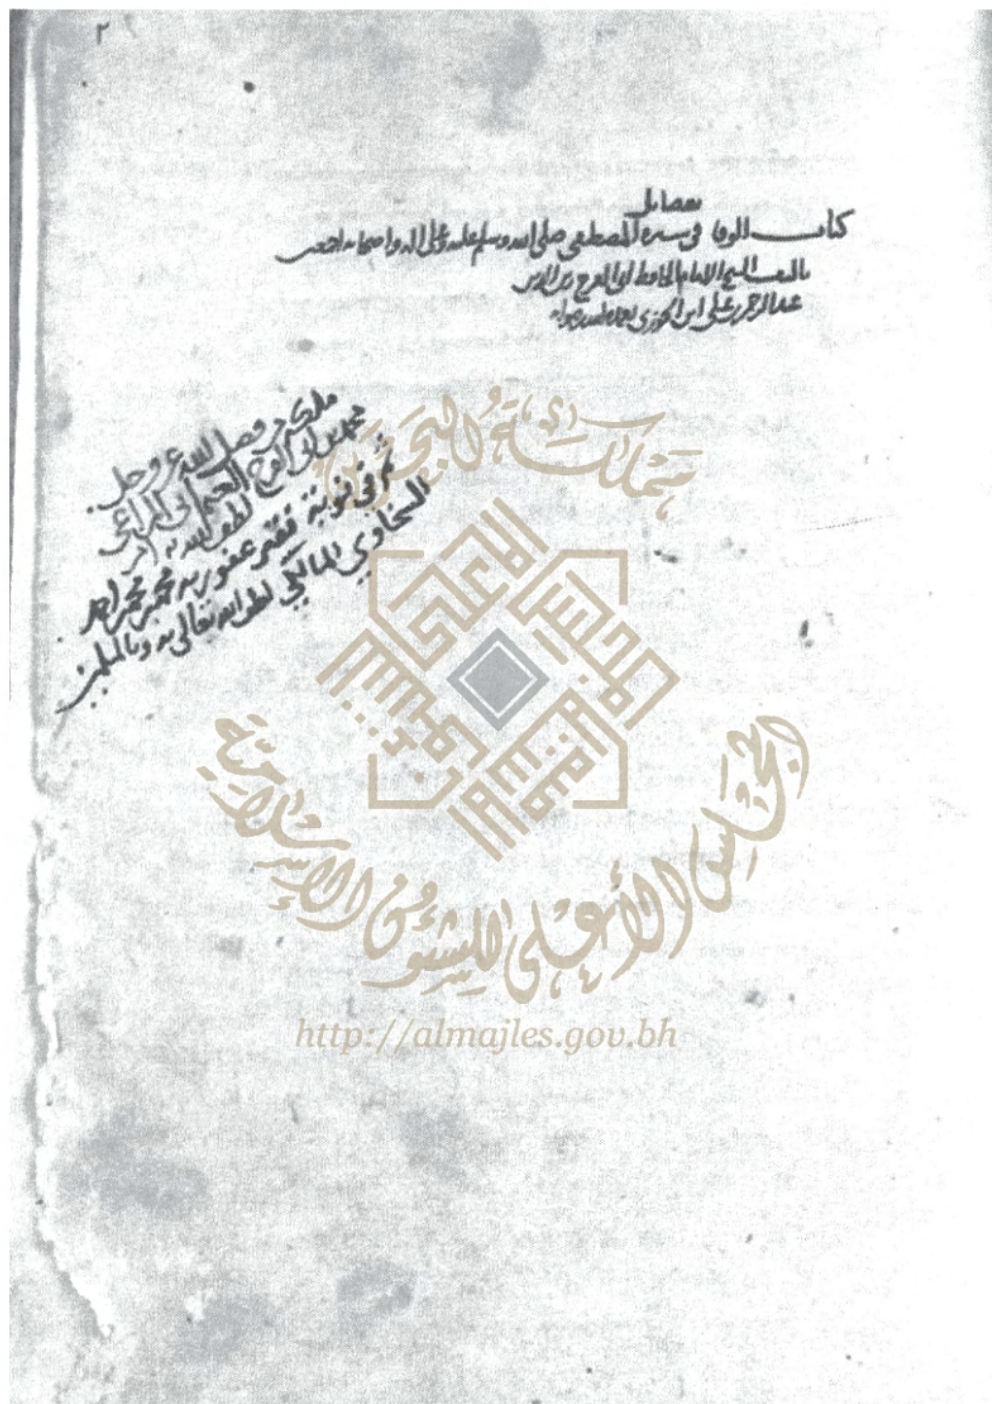 ٢
بفضايل
كتاب الوفا في سيرة المصطفى صلى الله وسلم عليه وعلى اله واصحابه اجمعين
تاليف الشيخ الامام الحافظ ابي الفرج زين الدين
عبد الرحمن بن علي ابن الجوزي تغمده الله برضوانه
من فضل الله عز وجل
محمد بن ابي الفرج المراغي
لطف الله به
ثم في نوبة فقير عفو ربه محمد بن محمد بن احمد
السخاوي المالكي لطف الله تعالى به وبالمسلمين
مملكة البحرين
المجلس الأعلى للشئون الإسلامية
http://almajles.gov.bh